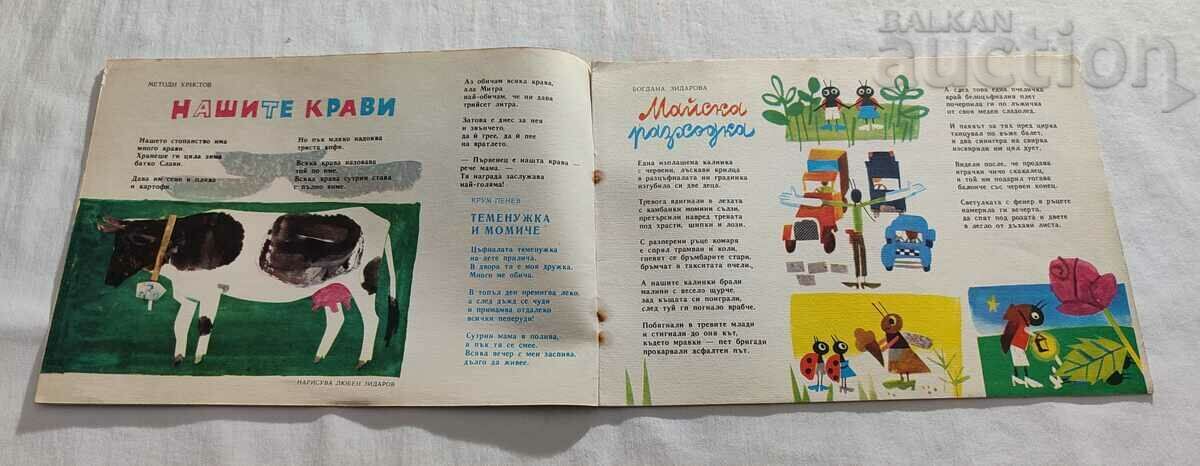 BALKAN
auction
МЕТОДИ ХРИСТОВ
НАШИТЕ КРАВИ
Нашето стопанство има
много крави.
Хранеше ги цяла зима
батко Слави.
Дава им сено и плява
и картофи.
Но пък мляко надоява
триста кофи.
Всяка крава назовава
той по име.
Всяка крава сутрин става
с пълно виме.
Аз обичам всяка крава,
ала Митра
най-обичам, че ни дава
трийсет литра.
Затова е днес за нея
и звънчето,
да ѝ грее, да ѝ пее
на вратлето.
— Първенец е нашта крава —
рече мама. —
Тя награда заслужава
най-голяма!
КРУМ ПЕНЕВ
ТЕМЕНУЖКА
И МОМИЧЕ
Цъфналата теменужка
на дете прилича.
В двора тя е моя дружка.
Много ме обича.
В топъл ден премигва леко,
а след дъжд се чуди
и примамва отдалеко
всички пеперуди!
Сутрин мама я полива,
а пък тя се смее.
Всяка вечер с мен заспива,
дълго да живее.
НАРИСУВА ЛЮБЕН ЗИДАРОВ
БОГДАНА ЗИДАРОВА
Майска
разходка
Една изплашена калинка
с червени, лъскави крилца
в разцъфналата ни градинка
изгубила си две деца.
Тревога вдигнали в лехата
с камбанки момини сълзи,
претърсили навред тревата
под храсти, шипки и лози.
С разперени ръце комаря
е спрял трамваи и коли,
гневят се бръмбарите стари,
бръмчат в такситата пчели.
А нашите калинки брали
малини с весело щурче,
зад къщата си поиграли,
след туй ги погнало врабче.
Побягнали в тревите млади
и стигнали до оня кът,
където мравки — пет бригади
прокарвали асфалтен път.
А след това една пчеличка
край белоцъфналия плет
почерпила ги по лъжичка
от своя меден сладолед.
И паякът за тях пред цирка
танцувал по въже балет,
а два синигера на свирка
изсвирили им цял дует.
Видели после, че продава
играчки чичо скакалец,
и той им подарил тогава
балонче със червен конец.
Светулката с фенер в ръцете
намерила ги вечерта,
да спят под розата и двете
в легло от дъхави листа.